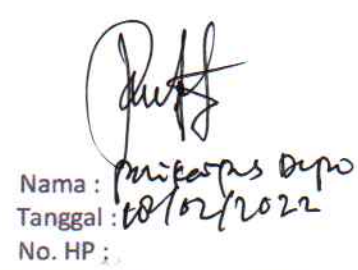 Nama : Polikarpus Depo
Tanggal : 10/02/2022
No. HP :